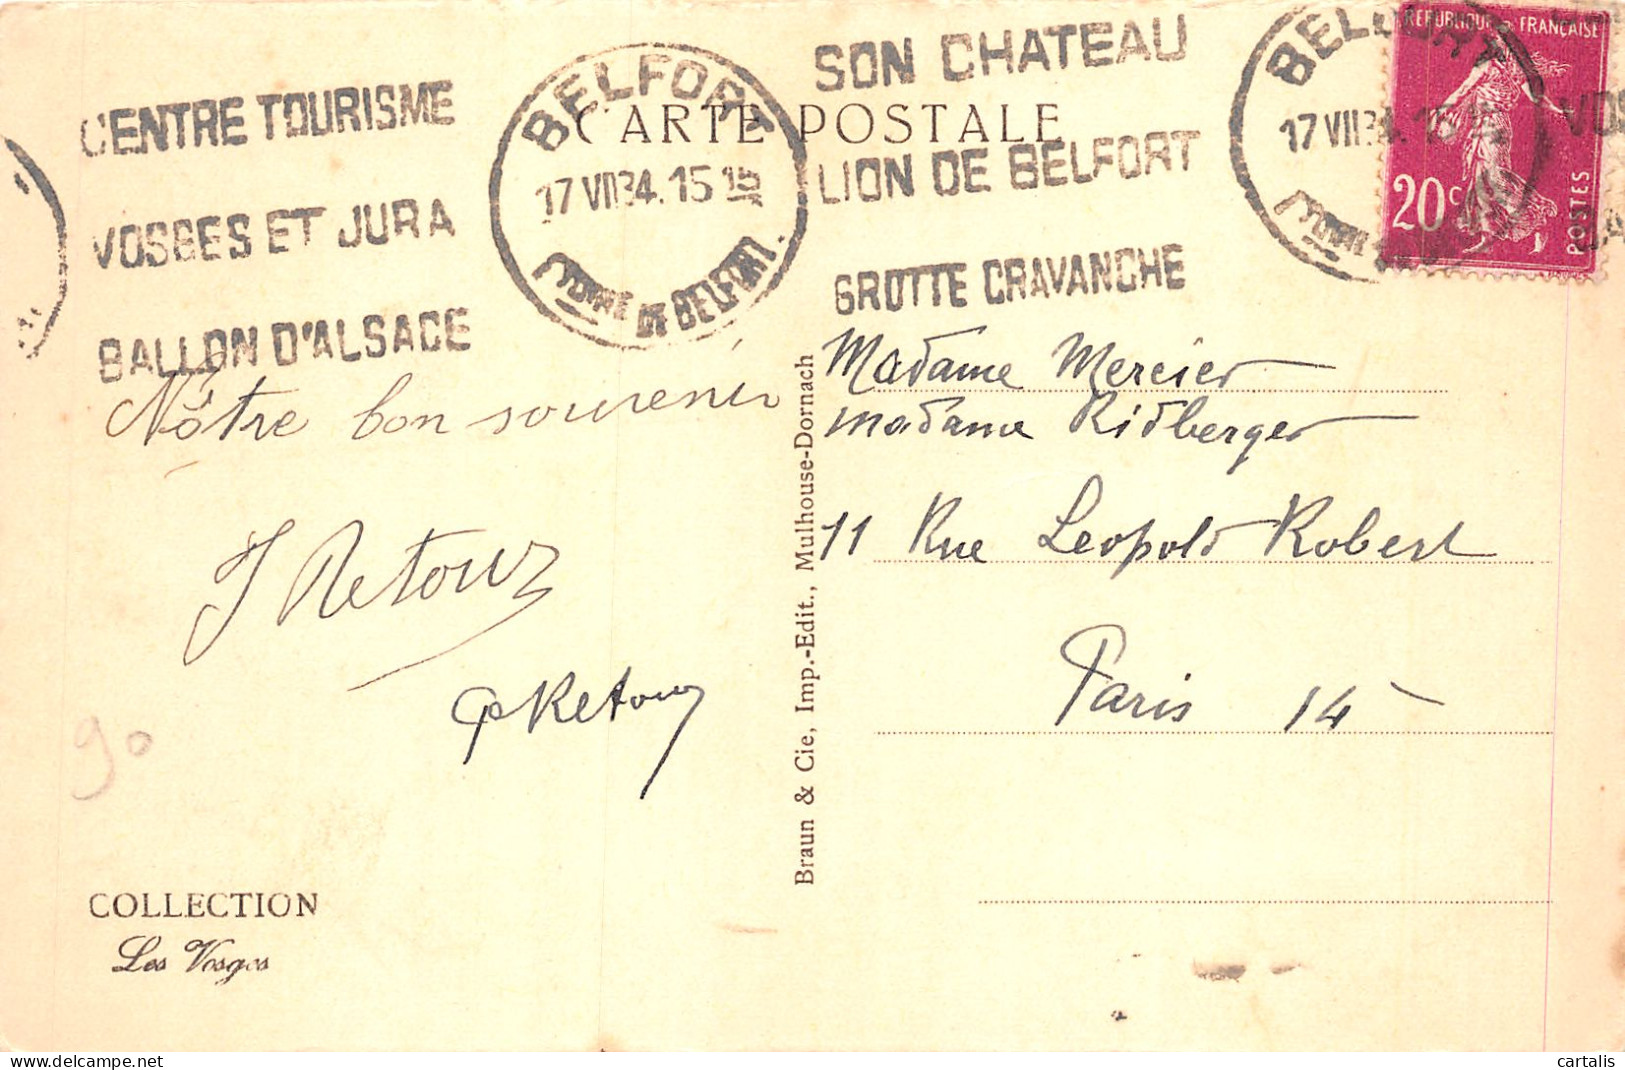 CENTRE TOURISME
VOSGES ET JURA
BALLON D'ALSACE
BELFORT
17 VII 34. 15 15
TOIRE DE BELFORT
SON CHATEAU
LION DE BELFORT
GROTTE CRAVANCHE
BELFORT
17 VII 34. 15
RÉPUBLIQUE FRANÇAISE
20c
POSTES
VOS
CARTE POSTALE
Nôtre bon souvenir
J Retour
P Retour
90
COLLECTION
Les Vosges
Braun & Cie, Imp.-Edit., Mulhouse-Dornach
Madame Mercier
madame Ridberger
11 Rue Leopold Robert
Paris 14
cartalis